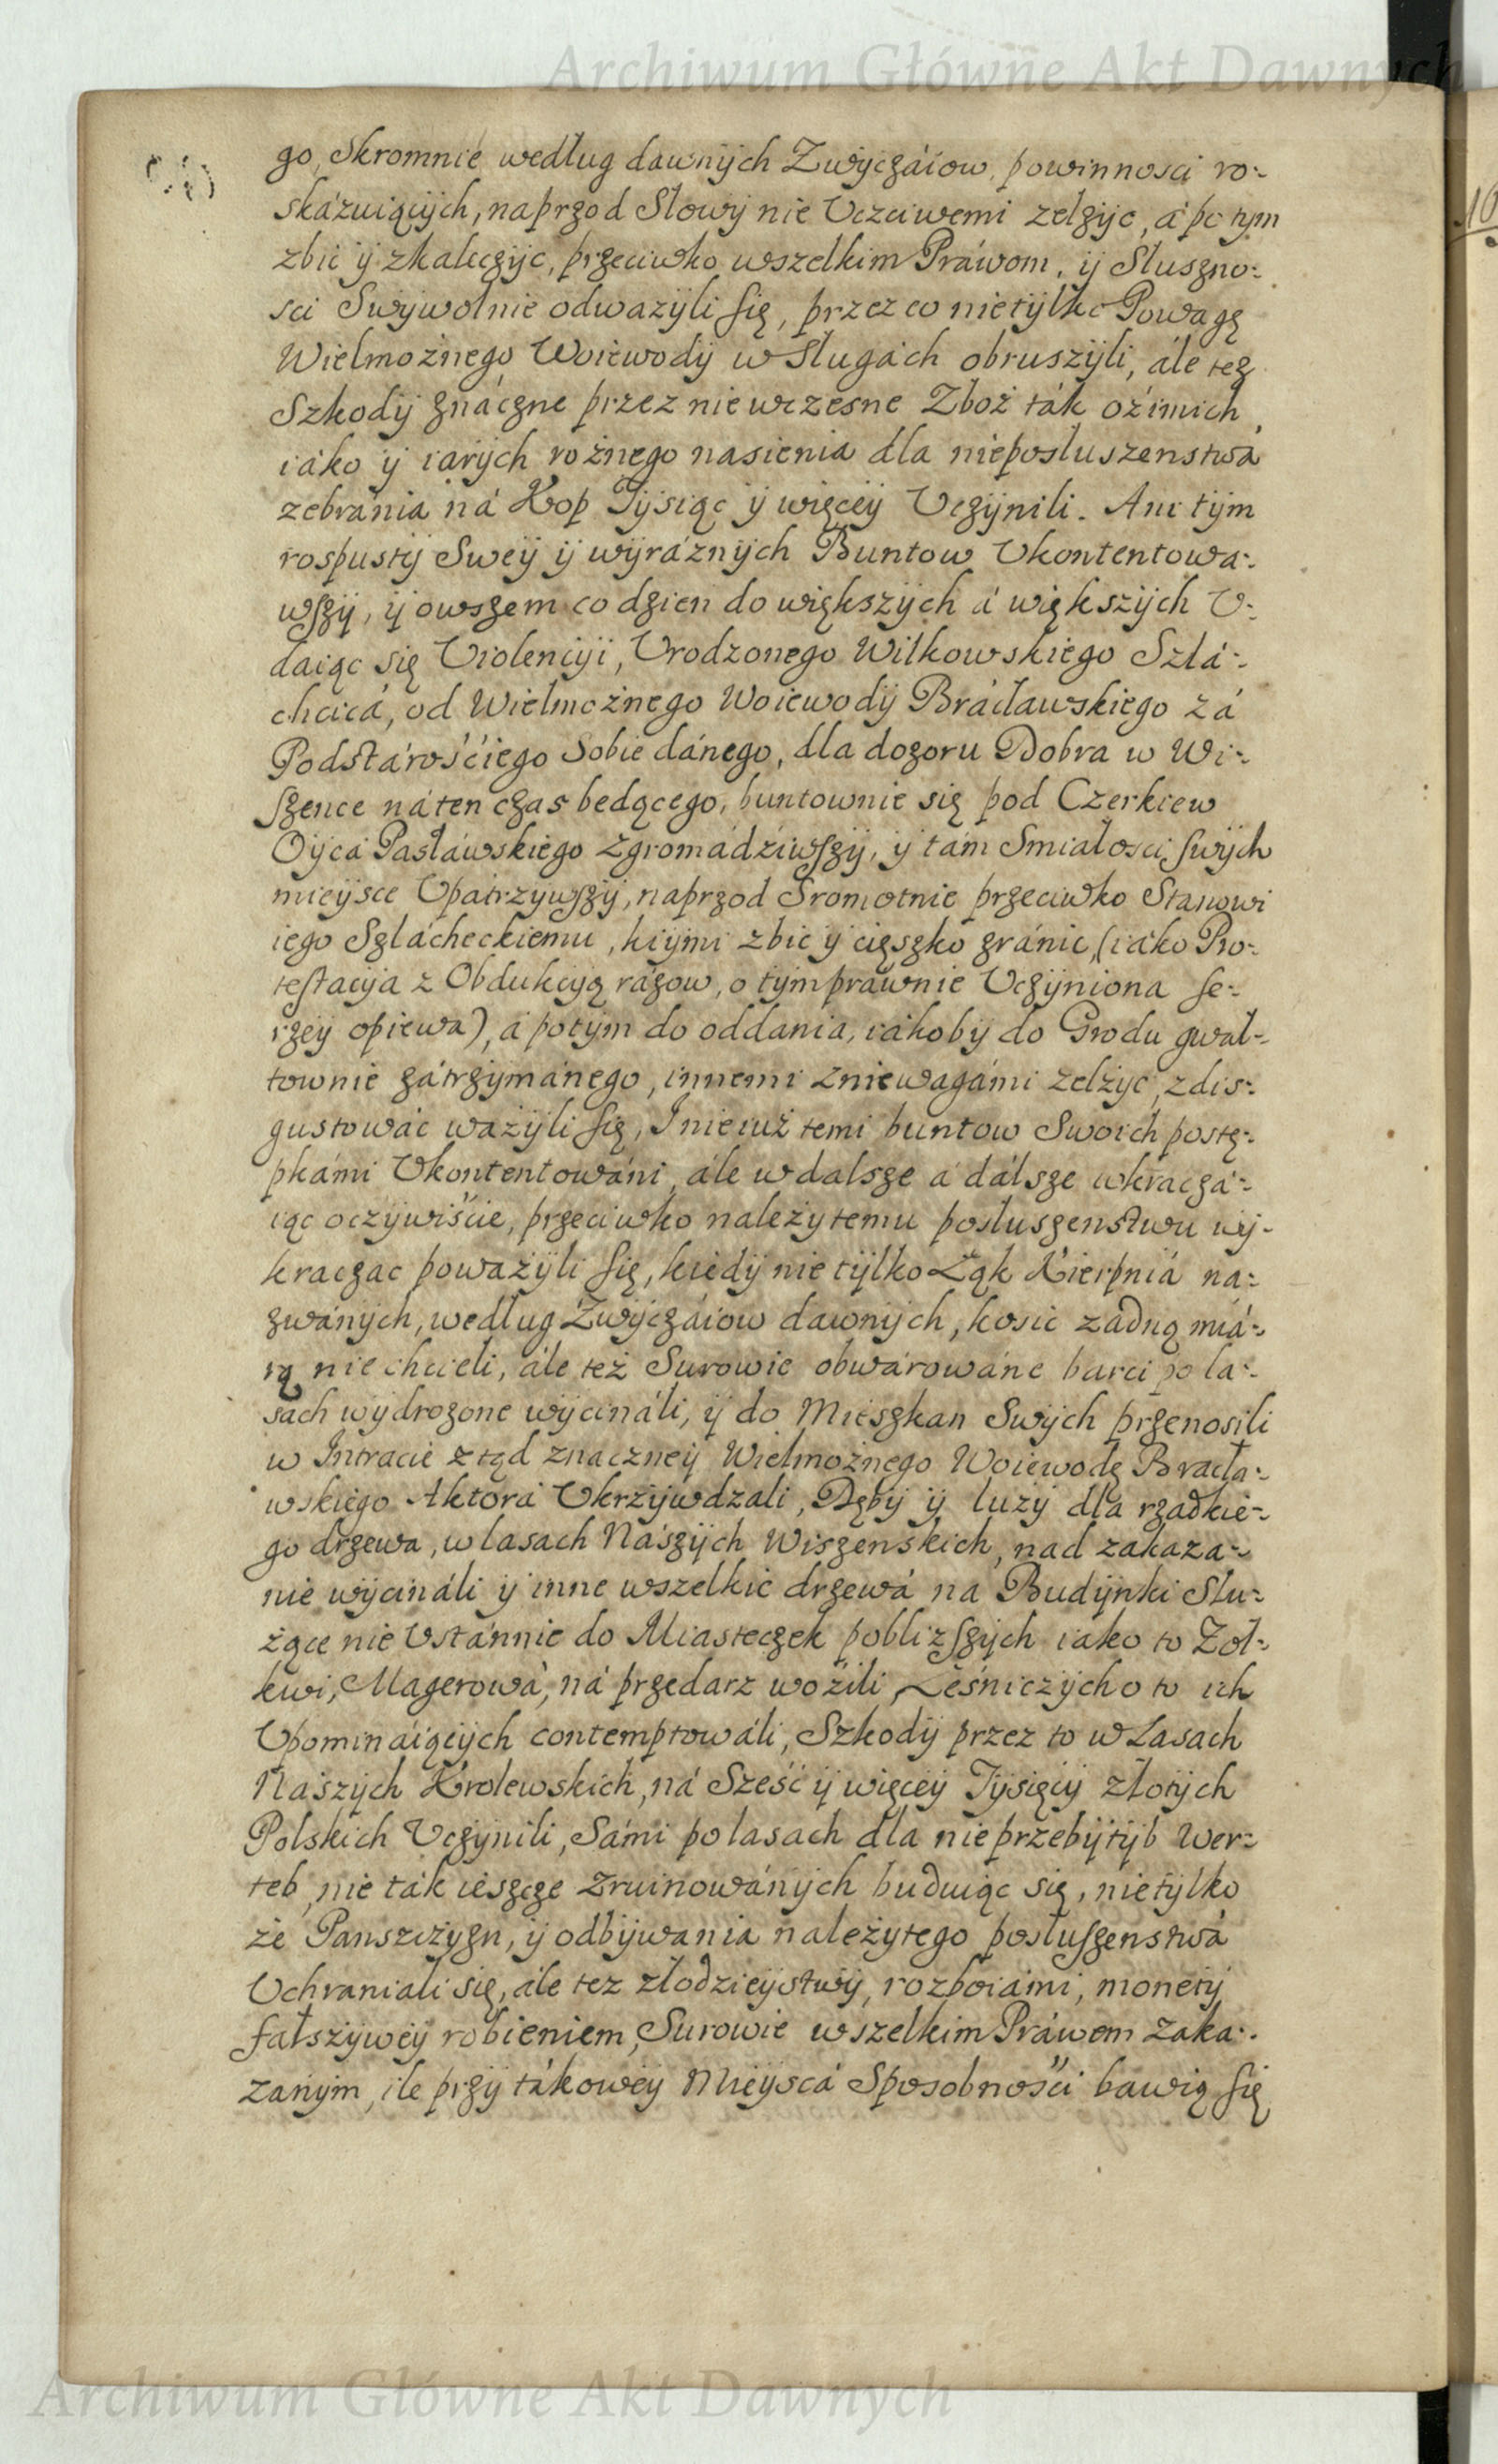 Archiwum Główne Akt Dawnych
go, Skromnie według dawnÿch Zwÿczáiow, powinnosci ro-
skázuiącÿch, naprzod Słowÿ nie Vczciwemi zelzÿc, á po tym
zbić ÿ zkaleczÿc, przeciwko wszelkim Práwom, ÿ Słuszno-
sci Swÿwolnie odwazÿli się, przez co nietÿlko Powagę
Wielmożnego Woiewodÿ w Sługách obruszÿli, ále tez
Szkodÿ znáczne przez nie wczesne Zboż ták oźimich,
iáko ÿ iarÿch rożnego nasienia dla nieposłuszenstwá
zebránia ná Kop Tÿsiąc ÿ więceÿ Vczÿnili. Ani tÿm
rospustÿ Sweÿ ÿ wÿráznÿch Buntow Vkontentowa-
wszÿ, ÿ owszem co dzien do większÿch á większÿch V-
daiąc się Violencÿi, Vrodzonego Wilkowskiego Szlá-
chcicá, od Wielmożnego Woiewodÿ Brácławskiego zá
Podstárośćiego Sobie dánego, dla dozoru Dobra w Wi-
szence ná ten czas bedącego, buntownie się pod Czerkiew
Oÿcá Pasłáwskiego zgromádźiwszÿ, ÿ tám Smiałosci swÿch
mieÿsce Vpatrzywszÿ, naprzod Sromotnie przeciwko Stanowi
iego Szlácheckiemu, kiÿmi zbić ÿ cięszko zránic, (iáko Pro-
testacÿa z Obdukcÿą rázow, o tÿm práwnie Vczÿniona se-
rzeÿ opiewa), á potÿm do oddania, iákobÿ do Grodu gwał-
townie zátrzÿmánego, innemi zniewagámi zelżÿc, zdis-
gustowáć ważÿli się, I nie iuż temi buntow Swoich postę-
pkámi Vkontentowáni, ále w dalsze á dálsze wkraczá-
iąc oczÿwiście, przeciwko należytemu posłuszenstwu wÿ-
kraczac poważÿli się, kiedÿ nie tÿlko Łąk Kierpniá na-
zwánÿch, według Zwÿczáiow dawnÿch, kosić żadną miá-
rą nie chcieli, ále też Surowie obwárowáne barci po la-
sach wÿdrożone wÿcináli, ÿ do Mieszkan Swÿch przenosili
w Intracie ztąd znaczneÿ Wielmożnego Woiewodę Bracła-
wskiego Aktorá Vkrzÿwdzali, Dębÿ ÿ luzÿ dla rzadkie-
go drzewa, w lasach Nászÿch Wiszenskich, nad zakaza-
nie wÿcináli ÿ inne wszelkie drzewá na Budÿnki Słu-
żące nie Vstánnie do Miasteczek pobliższÿch iako to Zoł-
kwi, Magerowá, ná przedarz woźili, Leśniczÿch o to ich
Vpomináiącÿch contemptowáli, Szkodÿ przez to w Lasach
Naszÿch Krolewskich, ná Sześć ÿ więceÿ Tÿsięcÿ złotÿch
Polskich Vczÿnili, Sámi po lasach dla nie przebÿtÿb Wer-
teb, nie ták ieszcze zruinowánÿch buduiąc się, nietÿlko
że Panszczyzn, ÿ odbÿwania należytego posłuszenstwá
Vchraniali się, ále tez złodzieÿstwÿ, rozboiámi, monetÿ
fałszÿweÿ robieniem, Surowie wszelkim Práwem zaka-
zanÿm, ile przÿ tákoweÿ Mieÿscá Sposobnośći bawią się
Archiwum Główne Akt Dawnych